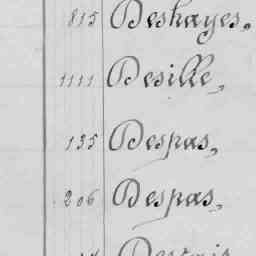 815 Deshayes,
1111 Desille,
135 Despas,
206 Despas,